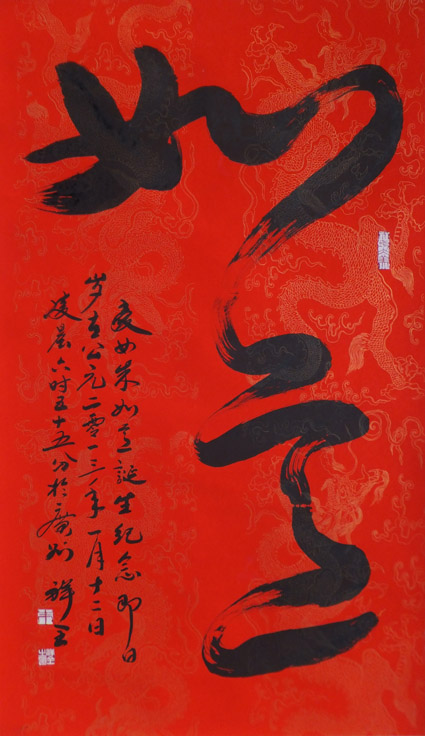 如意
愛女朱如意誕生紀念即日
岁在公元二零一三年一月十二日
凌晨六时五十五分於廣州 祥全